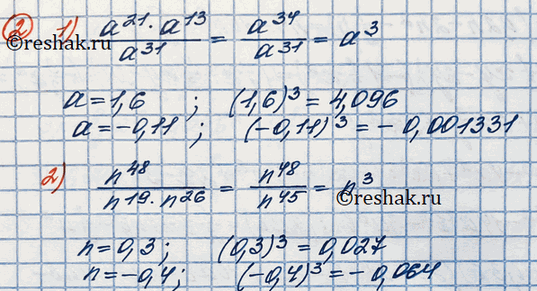 ② 1) a²¹·a¹³/a³¹ = a³⁴/a³¹ = a³
©reshak.ru
a=1,6 ; (1,6)³=4,096
a=-0,11 ; (-0,11)³=-0,001331
2) n⁴⁸/n¹⁹·n²⁶ = n⁴⁸/n⁴⁵ = n³
©reshak.ru
n=0,3; (0,3)³=0,027
n=-0,4; (-0,4)³=-0,064